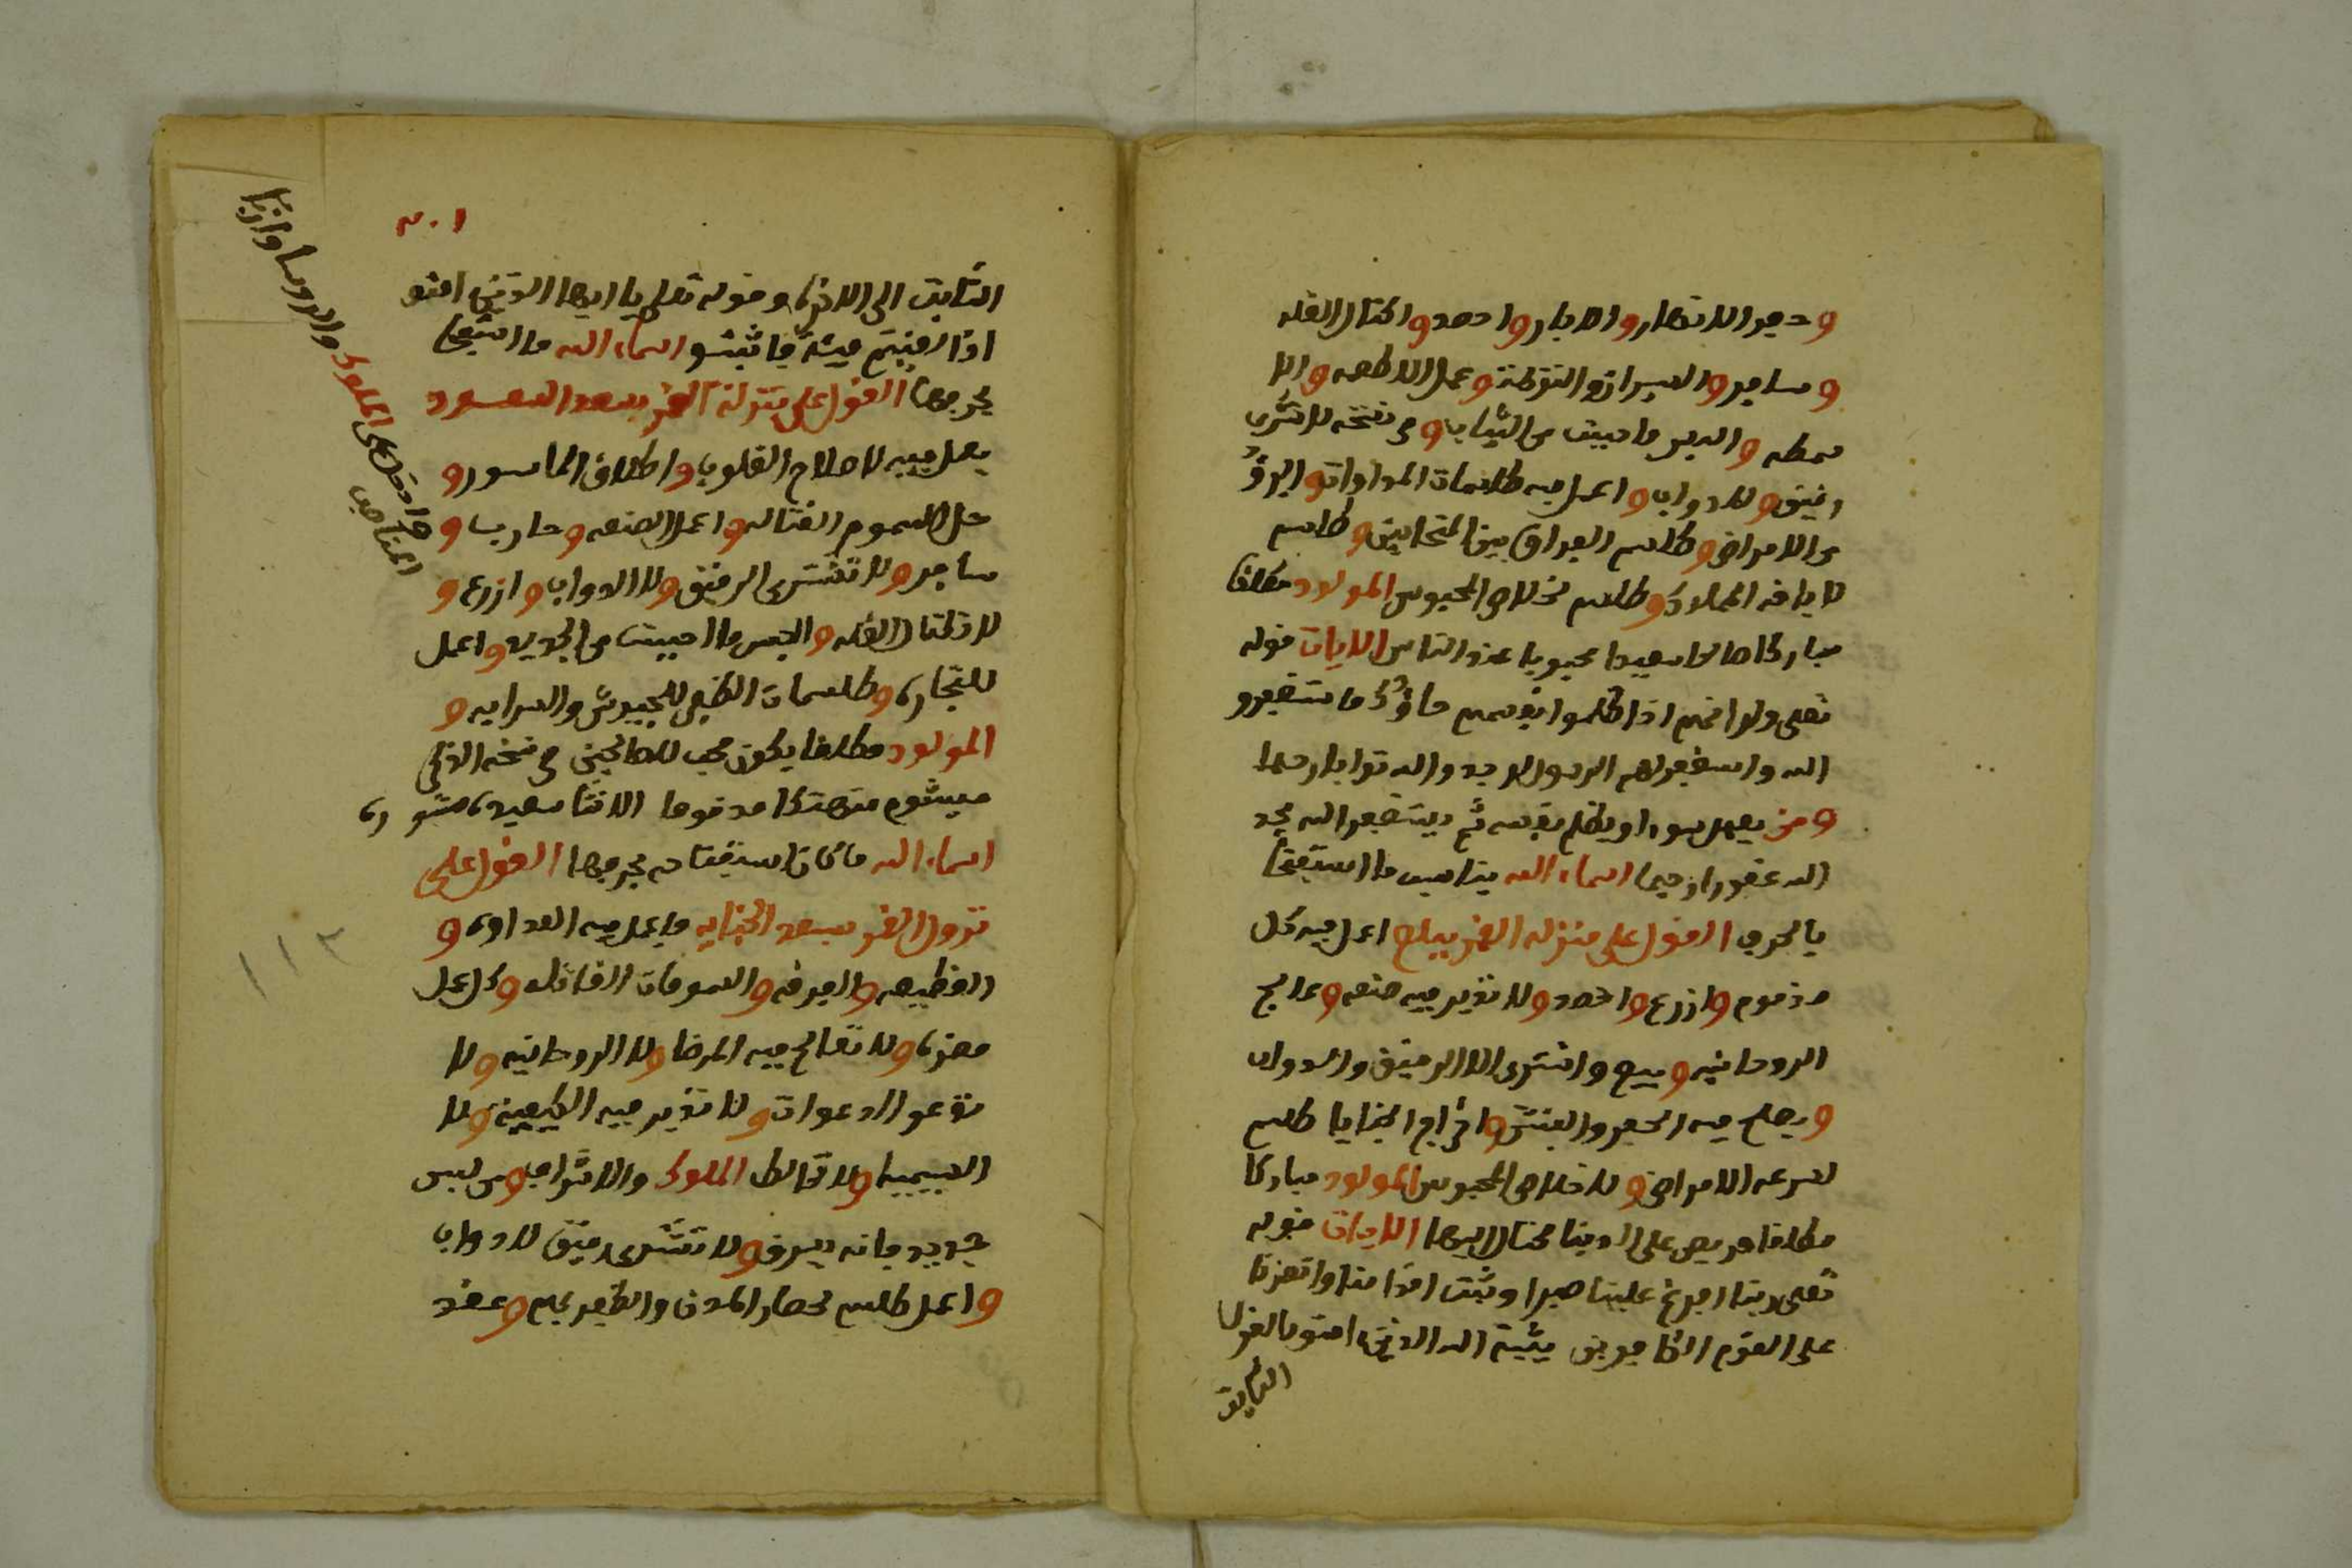 وحفر الانهار والابار واحصد واكتال الغله
وسافر والسرازو التوطنة وعمل الاطعمه والا
والبس ما حبيت من الثياب وفي نسخه لا تشري
رقيق ولا دواب واعمل فيه طلسمات المداوات والبرو
من الامراض وطلسم الفراق بين المتحابين وطلسم
لاباقه المملاك وطلسم لخلاص المحبوس المولود مطلقا
مباركا صالحا سعيدا محبوبا عند الناس الايات قوله
تعلى ولو انهم اذ ظلموا انفسهم جاؤك فاستغفرو
الله واستغفر لهم الرسول لوجدو الله توابا رحيما
ومن يعمل سوءا او يظلم نفسه ثم يستغفر الله يجد
الله غفورا رحيما اسماء الله يناسب ما استفتحا
بالحرف القول على منزله القمر ببلع اعمل فيه كل
مذموم وازرع واحصد ولا تدبر فيه صنعه وعالج
الروحانيه وبيع واشترى الا الرقيق والدواب
ويصلح فيه الحفر والنبش واخراج الخبايا طلسم
لسرعه الامراض ولا خلاص المحبوس المولود مباركا
مطلقا حريص على الدينا مختال فيها الايات قوله
تعلى ربنا افرغ علينا صبرا وثبت اقدامنا وانصرنا
على القوم الكافرين يثبت الله الذين امنو بالقول
الثابت
١٠٢
الثابت الى الاخره وقوله تعلى يا ايها الذين امنو
اذا لقيتم فيئة فاثبتو اسماء الله ما استفتحا
بحرفها القول على منزلة القمر بسعد السعود
يعمل فيه لاصلاح القلوب واطلاق الماسور و
حل السموم القتاله واعمل الصنعه وحارب و
سافر ولا تشترى الرقيق ولا الدواب وازرع و
لا تكتال الغله والبس ما احببت من الجديد واعمل
للتجاره وطلسمات الظفر للجيوش والسرايه و
المولود مطلقا يكون محب للصالحين في نسخه الذكر
ميشوم متهتكا مذموما الانثا سعيده مستوره
اسماء الله ما كان استفتاحه بحرفها القول على
نزول القمر بسعد الاخبايه فاعمل فيه العداوه و
القطيعه والفرقه والسومات القاتله وكل عمل
مضره ولا تعالج فيه المرضا ولا الروحانيه ولا
تدعو الدعوات ولا تدبر فيه الكيميه ولا
السيميا ولا تخالط الملوك والاشراف ومن لبس
جديد فانه يسرق ولا تشترى رقيق لا دواب
واعمل طلسم لحصار المدن والظفر بهم وعقد
وادخل على الملوك والروسا وارباب
المناصب
١١٢